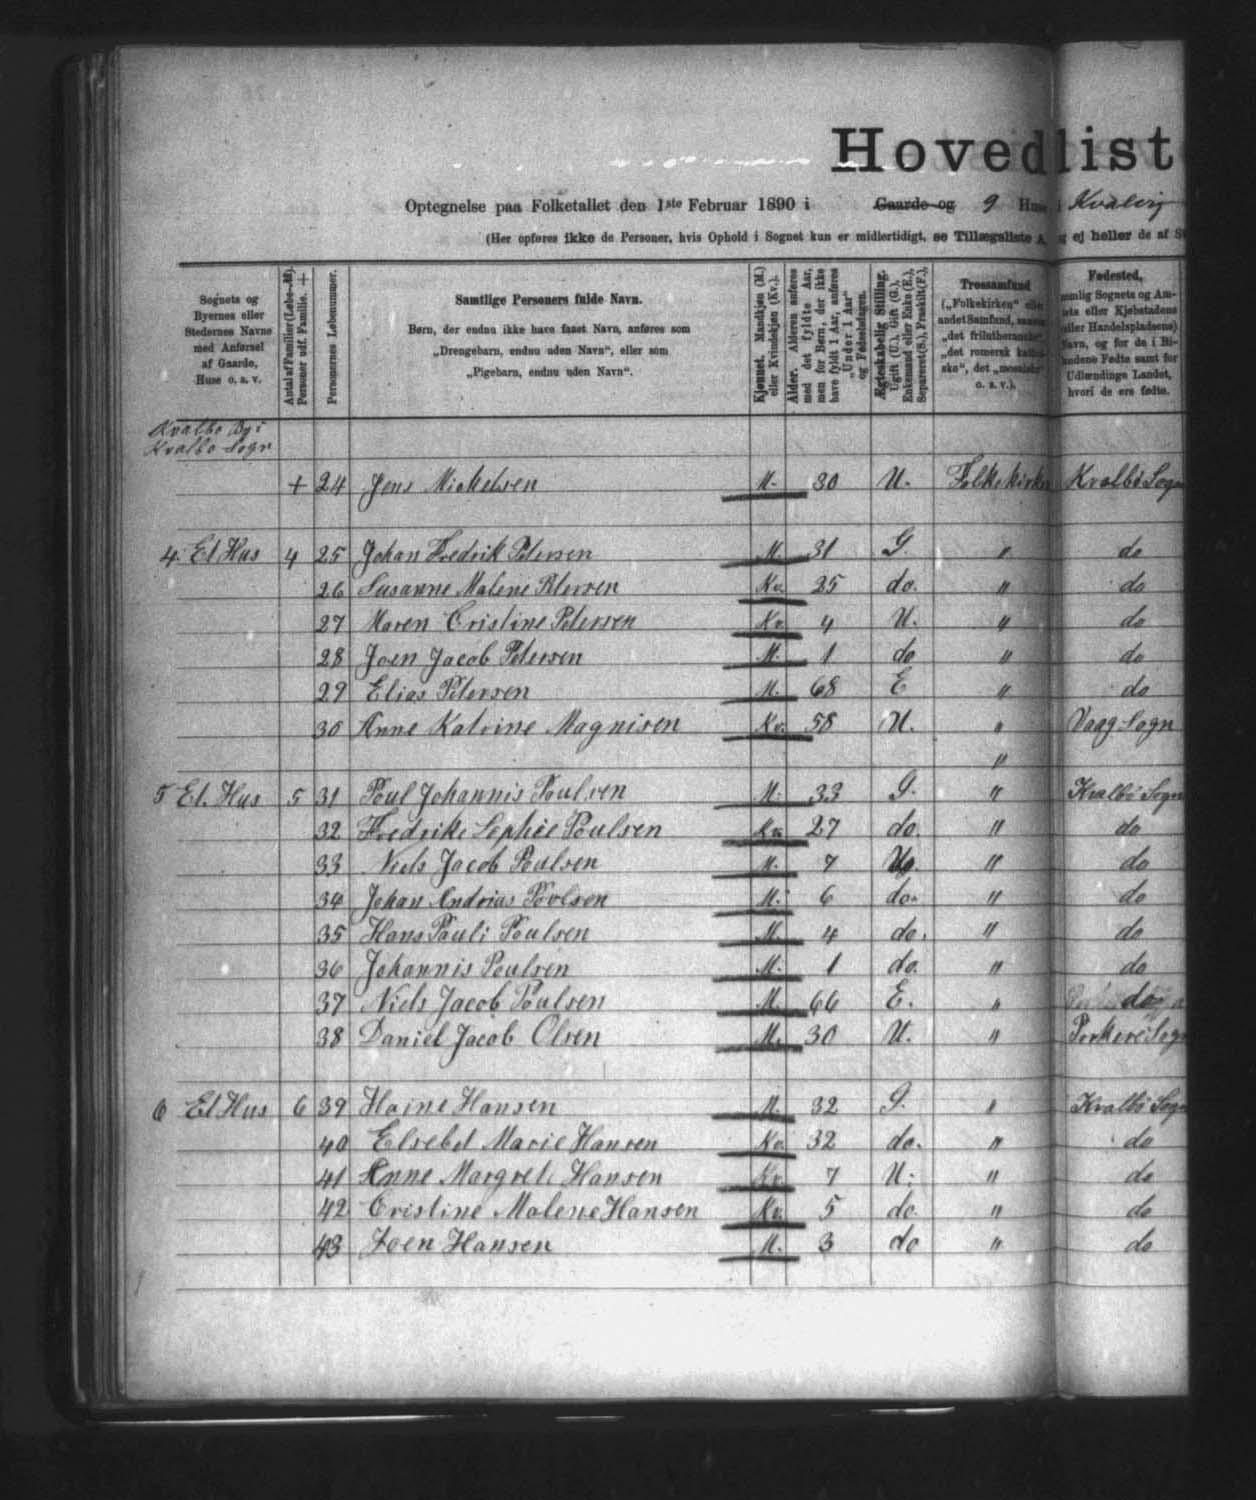 Hovedlist
Optegnelse paa Folketallet den 1ste Februar 1890 i Gaarde og 9 Huse i Kvalvig
(Her opføres ikke de Personer, hvis Ophold i Sognet kun er midlertidigt, se Tillægsliste A, og ej heller de af S
Sognets og Byernes eller Stedernes Navne med Anførsel af Gaarde, Huse o. s. v.
Antal af Familier (Løbe-№). Personer udf. Familie. +
Personernes Løbenummer.
Samtlige Personers fulde Navn.
Børn, der endnu ikke have faaet Navn, anføres som
„Drengebarn, endnu uden Navn“, eller som
„Pigebarn, endnu uden Navn“.
Kjønnet. Mandkjøn (M.) eller Kvindekjøn (Kv.).
Alder. Alderen anføres med det fyldte Aar, men for Børn, der ikke have fyldt 1 Aar, anføres „Under 1 Aar“ og Fødselsdagen.
Ægteskabelig Stilling. Ugift (U.), Gift (G.), Enkemand eller Enke (E.), Separeret (S.), Fraskilt (F.).
Trossamfund („Folkekirken“ eller andet Samfund, saasom „det frilutheranske“, „det romersk katholske“, det „mosaiske“ o. s. v.).
Fødested, nemlig Sognets og Amtets eller Kjøbstadens (eller Handelspladsens) Navn, og for de i Bilandene Fødte samt for Udlændinge Landet, hvori de ere fødte.
Kvalbø By i
Kvalbø Sogn
+ 24 Jens Mickelsen M. 30 U. Folkekirken Kvalbø Sogn
4 Et Hus 4 25 Johan Fredrik Petersen M. 31 G. " do
26 Susanne Malene Petersen Kv. 25 do. " do
27 Maren Cristine Petersen Kv. 4 U. " do
28 Joen Jacob Petersen M. 1 do " do
29 Elias Petersen M. 68 E " do
30 Anne Katrine Magnisen Kv. 58 U. " Vaag Sogn
"
5 Et. Hus 5 31 Poul Johannis Poulsen M. 33 G. " Kvalbø Sogn
32 Fredrike Sophie Poulsen Kv. 27 do. " do
33 Niels Jacob Poulsen M. 7 U. " do
34 Johan Andrias Poulsen M. 6 do. " do
35 Hans Pauli Poulsen M. 4 do. " do
36 Johannis Poulsen M. 1 do. " do
37 Niels Jacob Poulsen M. 66 E. " do
38 Daniel Jacob Olsen M. 30 U. " Porkere Sogn
6 Et Hus 6 39 Haine Hansen M. 32 G. " Kvalbø Sogn
40 Elsebet Marie Hansen Kv. 32 do. " do
41 Anne Margrete Hansen Kv. 7 U. " do
42 Cristine Malene Hansen Kv. 5 do. " do
43 Joen Hansen M. 3 do " do